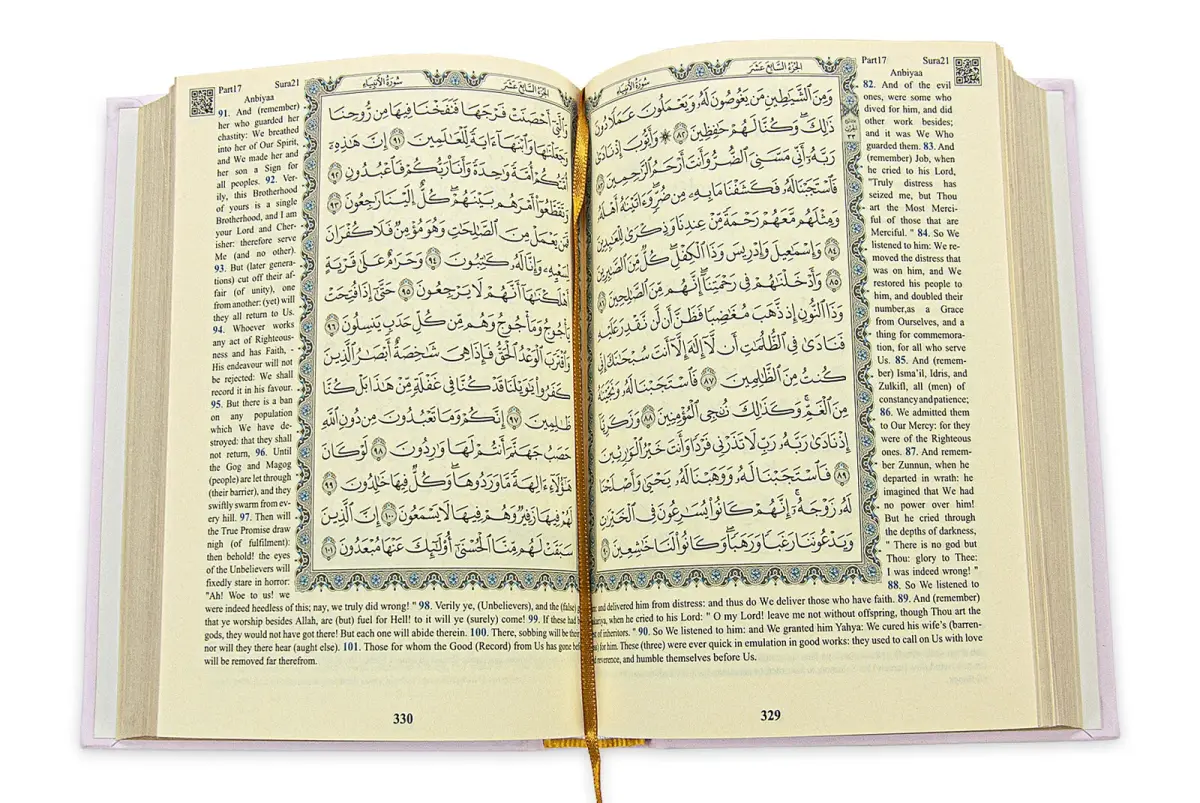 Part17 Sura21
Anbiyaa
الجزء السابع عشر
سورة الأنبياء
وَمِنَ الشَّيَاطِينِ مَن يَغُوصُونَ لَهُ وَيَعْمَلُونَ عَمَلًا دُونَ
ذَٰلِكَ ۖ وَكُنَّا لَهُمْ حَافِظِينَ ٨٢ ۞ وَأَيُّوبَ إِذْ نَادَىٰ
رَبَّهُ أَنِّي مَسَّنِيَ الضُّرُّ وَأَنتَ أَرْحَمُ الرَّاحِمِينَ
فَاسْتَجَبْنَا لَهُ فَكَشَفْنَا مَا بِهِ مِن ضُرٍّ ۖ وَآتَيْنَاهُ أَهْلَهُ
وَمِثْلَهُم مَّعَهُمْ رَحْمَةً مِّنْ عِندِنَا وَذِكْرَىٰ لِلْعَابِدِينَ
٨٤ وَإِسْمَاعِيلَ وَإِدْرِيسَ وَذَا الْكِفْلِ ۖ كُلٌّ مِّنَ الصَّابِرِينَ
٨٥ وَأَدْخَلْنَاهُمْ فِي رَحْمَتِنَا ۖ إِنَّهُم مِّنَ الصَّالِحِينَ
وَذَا النُّونِ إِذ ذَّهَبَ مُغَاضِبًا فَظَنَّ أَن لَّن نَّقْدِرَ عَلَيْهِ
فَنَادَىٰ فِي الظُّلُمَاتِ أَن لَّا إِلَٰهَ إِلَّا أَنتَ سُبْحَانَكَ إِنِّي
كُنتُ مِنَ الظَّالِمِينَ ٨٧ فَاسْتَجَبْنَا لَهُ وَنَجَّيْنَاهُ
مِنَ الْغَمِّ ۚ وَكَذَٰلِكَ نُنجِي الْمُؤْمِنِينَ ٨٨ وَزَكَرِيَّا
إِذْ نَادَىٰ رَبَّهُ رَبِّ لَا تَذَرْنِي فَرْدًا وَأَنتَ خَيْرُ الْوَارِثِينَ
٨٩ فَاسْتَجَبْنَا لَهُ وَوَهَبْنَا لَهُ يَحْيَىٰ وَأَصْلَحْنَا
لَهُ زَوْجَهُ ۚ إِنَّهُمْ كَانُوا يُسَارِعُونَ فِي الْخَيْرَاتِ
وَيَدْعُونَنَا رَغَبًا وَرَهَبًا ۖ وَكَانُوا لَنَا خَاشِعِينَ ٩٠
82. And of the evil
ones, were some who
dived for him, and did
other work besides;
and it was We Who
guarded them. 83. And
(remember) Job, when
he cried to his Lord,
"Truly distress has
seized me, but Thou
art the Most Merci-
ful of those that are
Merciful. " 84. So We
listened to him: We re-
moved the distress that
was on him, and We
restored his people to
him, and doubled their
number,as a Grace
from Ourselves, and a
thing for commemora-
tion, for all who serve
Us. 85. And (remem-
ber) Isma'il, Idris, and
Zulkifl, all (men) of
constancy and patience;
86. We admitted them
to Our Mercy: for they
were of the Righteous
ones. 87. And remem-
ber Zunnun, when he
departed in wrath: he
imagined that We had
no power over him!
But he cried through
the depths of darkness,
" There is no god but
Thou: glory to Thee:
I was indeed wrong! "
88. So We listened to
and delivered him from distress: and thus do We deliver those who have faith. 89. And (remember)
when he cried to his Lord: " O my Lord! leave me not without offspring, though Thou art the
of inheritors. " 90. So We listened to him: and We granted him Yahya: We cured his wife's (barren-
for him. These (three) were ever quick in emulation in good works: they used to call on Us with love
reverence, and humble themselves before Us.
329
Part17 Sura21
Anbiyaa
الجزء السابع عشر
سورة الأنبياء
وَالَّتِي أَحْصَنَتْ فَرْجَهَا فَنَفَخْنَا فِيهَا مِن رُّوحِنَا
وَجَعَلْنَاهَا وَابْنَهَا آيَةً لِّلْعَالَمِينَ ٩١ إِنَّ هَٰذِهِ
أُمَّتُكُمْ أُمَّةً وَاحِدَةً وَأَنَا رَبُّكُمْ فَاعْبُدُونِ ٩٢
وَتَقَطَّعُوا أَمْرَهُم بَيْنَهُمْ ۖ كُلٌّ إِلَيْنَا رَاجِعُونَ ٩٣
فَمَن يَعْمَلْ مِنَ الصَّالِحَاتِ وَهُوَ مُؤْمِنٌ فَلَا كُفْرَانَ
لِسَعْيِهِ وَإِنَّا لَهُ كَاتِبُونَ ٩٤ وَحَرَامٌ عَلَىٰ قَرْيَةٍ
أَهْلَكْنَاهَا أَنَّهُمْ لَا يَرْجِعُونَ ٩٥ حَتَّىٰ إِذَا فُتِحَتْ
يَأْجُوجُ وَمَأْجُوجُ وَهُم مِّن كُلِّ حَدَبٍ يَنسِلُونَ ٩٦
وَاقْتَرَبَ الْوَعْدُ الْحَقُّ فَإِذَا هِيَ شَاخِصَةٌ أَبْصَارُ الَّذِينَ
كَفَرُوا يَا وَيْلَنَا قَدْ كُنَّا فِي غَفْلَةٍ مِّنْ هَٰذَا بَلْ كُنَّا
ظَالِمِينَ ٩٧ إِنَّكُمْ وَمَا تَعْبُدُونَ مِن دُونِ اللَّهِ
حَصَبُ جَهَنَّمَ أَنتُمْ لَهَا وَارِدُونَ ٩٨ لَوْ كَانَ
هَٰؤُلَاءِ آلِهَةً مَّا وَرَدُوهَا ۖ وَكُلٌّ فِيهَا خَالِدُونَ ٩٩
لَهُمْ فِيهَا زَفِيرٌ وَهُمْ فِيهَا لَا يَسْمَعُونَ ١٠٠ إِنَّ الَّذِينَ
سَبَقَتْ لَهُم مِّنَّا الْحُسْنَىٰ أُولَٰئِكَ عَنْهَا مُبْعَدُونَ ١٠١
91. And (remember)
her who guarded her
chastity: We breathed
into her of Our Spirit,
and We made her and
her son a Sign for
all peoples. 92. Ver-
ily, this Brotherhood
of yours is a single
Brotherhood, and I am
your Lord and Cher-
isher: therefore serve
Me (and no other).
93. But (later genera-
tions) cut off their af-
fair (of unity), one
from another: (yet) will
they all return to Us.
94. Whoever works
any act of Righteous-
ness and has Faith, -
His endeavour will not
be rejected: We shall
record it in his favour.
95. But there is a ban
on any population
which We have de-
stroyed: that they shall
not return, 96. Until
the Gog and Magog
(people) are let through
(their barrier), and they
swiftly swarm from ev-
ery hill. 97. Then will
the True Promise draw
nigh (of fulfilment):
then behold! the eyes
of the Unbelievers will
fixedly stare in horror:
"Ah! Woe to us! we
were indeed heedless of this; nay, we truly did wrong! " 98. Verily ye, (Unbelievers), and the (false)
that ye worship besides Allah, are (but) fuel for Hell! to it will ye (surely) come! 99. If these had
gods, they would not have got there! But each one will abide therein. 100. There, sobbing will be their
nor will they there hear (aught else). 101. Those for whom the Good (Record) from Us has gone
will be removed far therefrom.
330